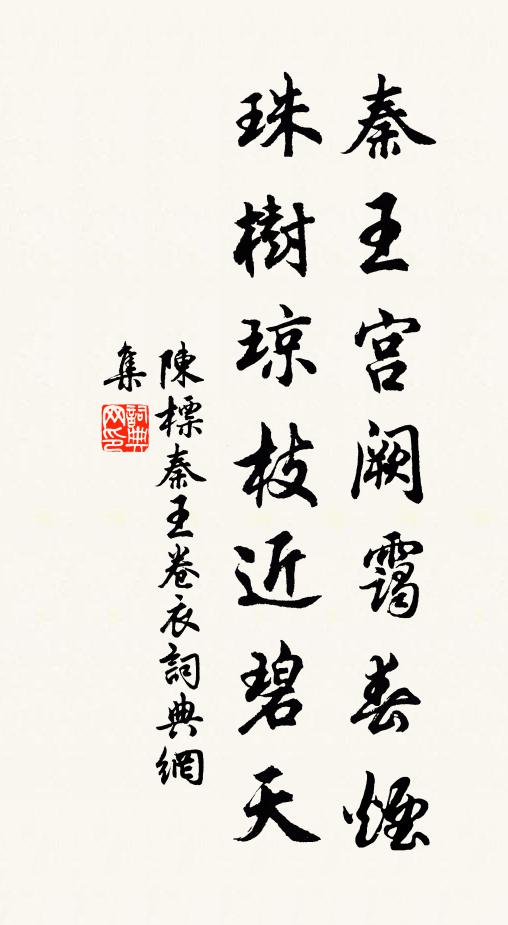 秦王宫阙霭春煙
珠樹琼枝近碧天
陳標秦王卷衣詞典網
集
詞典网印